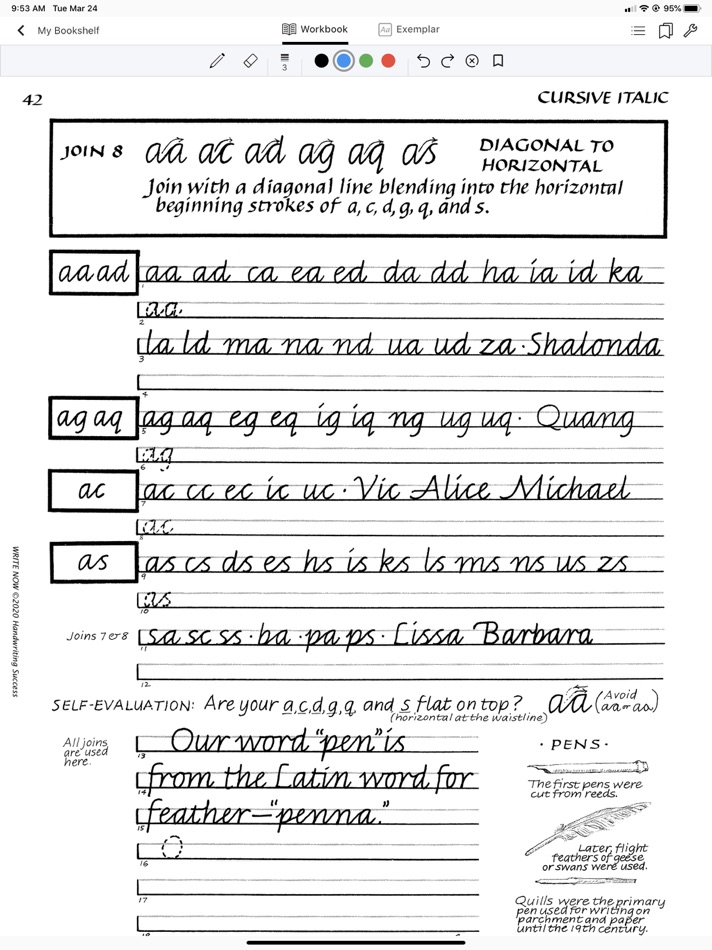 9:53 AM Tue Mar 24
95%
My Bookshelf
Workbook
Aa Exemplar
3
42
CURSIVE ITALIC
JOIN 8
aa ac ad ag aq as
DIAGONAL TO
HORIZONTAL
Join with a diagonal line blending into the horizontal
beginning strokes of a, c, d, g, q, and s.
aa ad
aa ad ca ea ed da dd ha ia id ka
1
aa.
2
la ld ma na nd ua ud za · Shalonda
3
4
ag aq
ag aq eg eq ig iq ng ug uq · Quang
5
ag
6
ac
ac cc ec ic uc · Vic Alice Michael
7
ac
8
as
as cs ds es hs is ks ls ms ns us zs
9
as
10
Joins 7 & 8
sa sc ss · ba · pa ps · Lissa Barbara
11
12
WRITE NOW ©2020 Handwriting Success
SELF-EVALUATION: Are your a,c,d,g,q, and s flat on top?
(horizontal at the waistline)
aa
(Avoid
aa or aa.)
All joins
are used
here.
Our word "pen" is
13
from the Latin word for
14
feather—"penna."
15
O
16
17
18
· PENS ·
The first pens were
cut from reeds.
Later, flight
feathers of geese
or swans were used.
Quills were the primary
pen used for writing on
parchment and paper
until the 19th century.